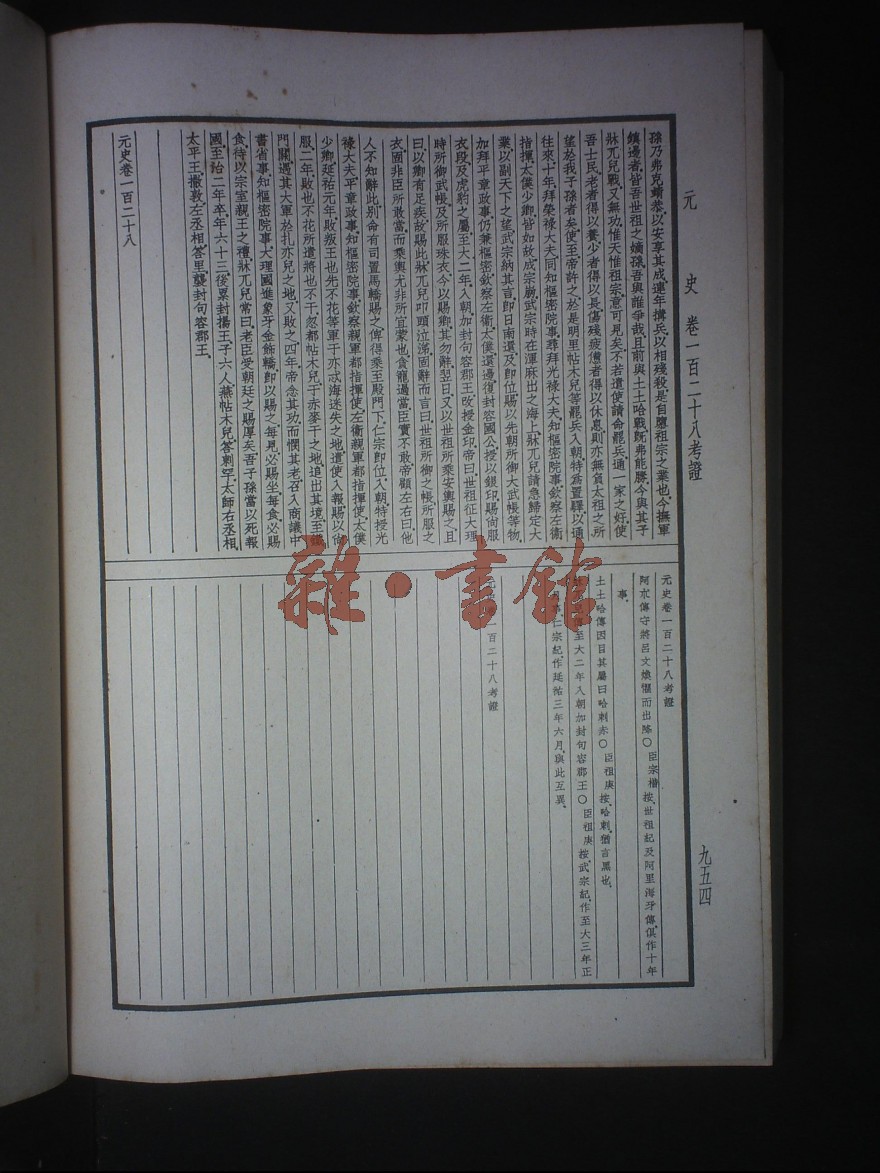 元 史 卷一百二十八考證
孫乃弗克靖恭以安享其成連年搆兵以相殘殺是自隳祖宗之業也今撫軍
鎮邊者皆吾世祖之嫡孫吾與誰爭哉且前與土土哈戰既弗能勝今與其子
牀兀兒戰又無功惟天惟祖宗意可見矣不若遣使請命罷兵通一家之好使
吾士民老者得以養少者得以長傷殘疲憊者得以休息則亦無負太祖之所
望於我子孫者矣使至帝許之於是明里帖木兒等罷兵入朝特爲置驛以通
往來十年拜榮祿大夫同知樞密院事尋拜光祿大夫知樞密院事欽察左衛
指揮太僕少卿皆如故成宗崩武宗時在渾麻出之海上牀兀兒請急歸定大
業以副天下之望武宗納其言即日南還及即位賜以先朝所御大武帳等物
加拜平章政事仍兼樞密欽察左衛太僕還邊復封容國公授以銀印賜尙服
衣段及虎豹之屬至大二年入朝加封句容郡王改授金印帝曰世祖征大理
時所御武帳及所服珠衣今以賜卿其勿辭翌日又以世祖所乘安輿賜之且
曰以卿有足疾故賜此牀兀兒叩頭泣涕固辭而言曰世祖所御之帳所服之
衣固非臣所敢當而乘輿尤非所宜蒙也貪寵過當臣實不敢帝顧左右曰他
人不知辭此別命有司置馬轎賜之俾得乘至殿門下仁宗即位入朝特授光
祿大夫平章政事知樞密院事欽察親軍都指揮使左衛親軍都指揮使太僕
少卿延祐元年敗叛王也先不花等軍于亦忒海迷失之地遣使入報賜以尙
服二年敗也不花所遣將也不干忽都帖木兒于赤麥干之地追出其境至鐵
門關遇其大軍於扎亦兒之地又敗之四年帝念其功而憫其老召入商議中
書省事知樞密院事大理國進象牙金飾轎即以賜之每見必賜坐每食必賜
食待以宗室親王之禮牀兀兒常曰老臣受朝廷之賜厚矣吾子孫當以死報
國至治二年卒年六十三後累封揚王子六人燕帖木兒答剌罕太師右丞相
太平王撒敦左丞相答里襲封句容郡王
元史卷一百二十八
元史卷一百二十八考證
阿朮傳守將呂文煥懼而出降○臣宗楷按世祖紀及阿里海牙傳俱作十年
事
土土哈傳因目其屬曰哈剌赤○臣祖庚按哈剌猶言黑也
至大二年入朝加封句容郡王○臣祖庚按武宗紀作至大三年正
仁宗紀作延祐三年六月與此互異
元一百二十八考證
九五四
雜·書館